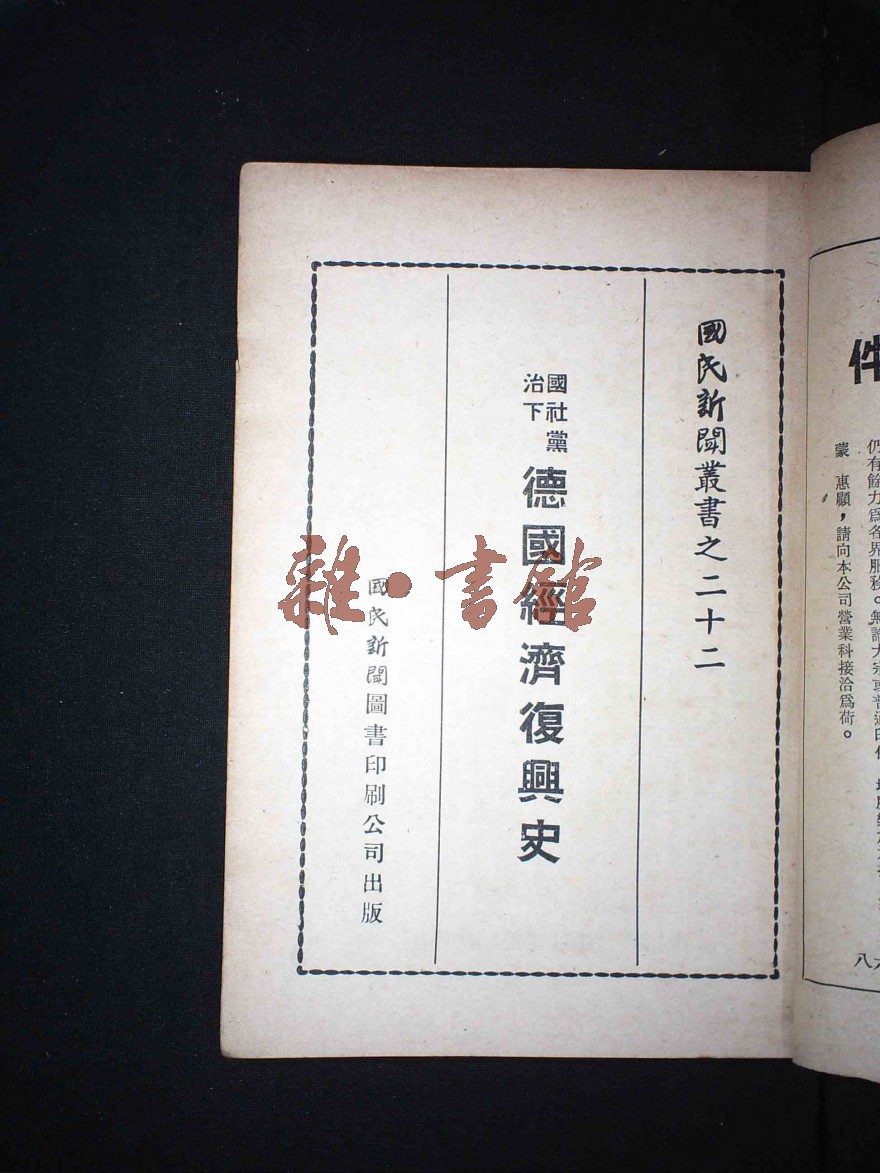 國民新聞叢書之二十二
國社黨
治下
德國經濟復興史
國民新聞圖書印刷公司出版
雜·書館
件
仍有餘力爲各界服務。無論大宗或普通印件
蒙 惠顧，請向本公司營業科接洽爲荷。
八